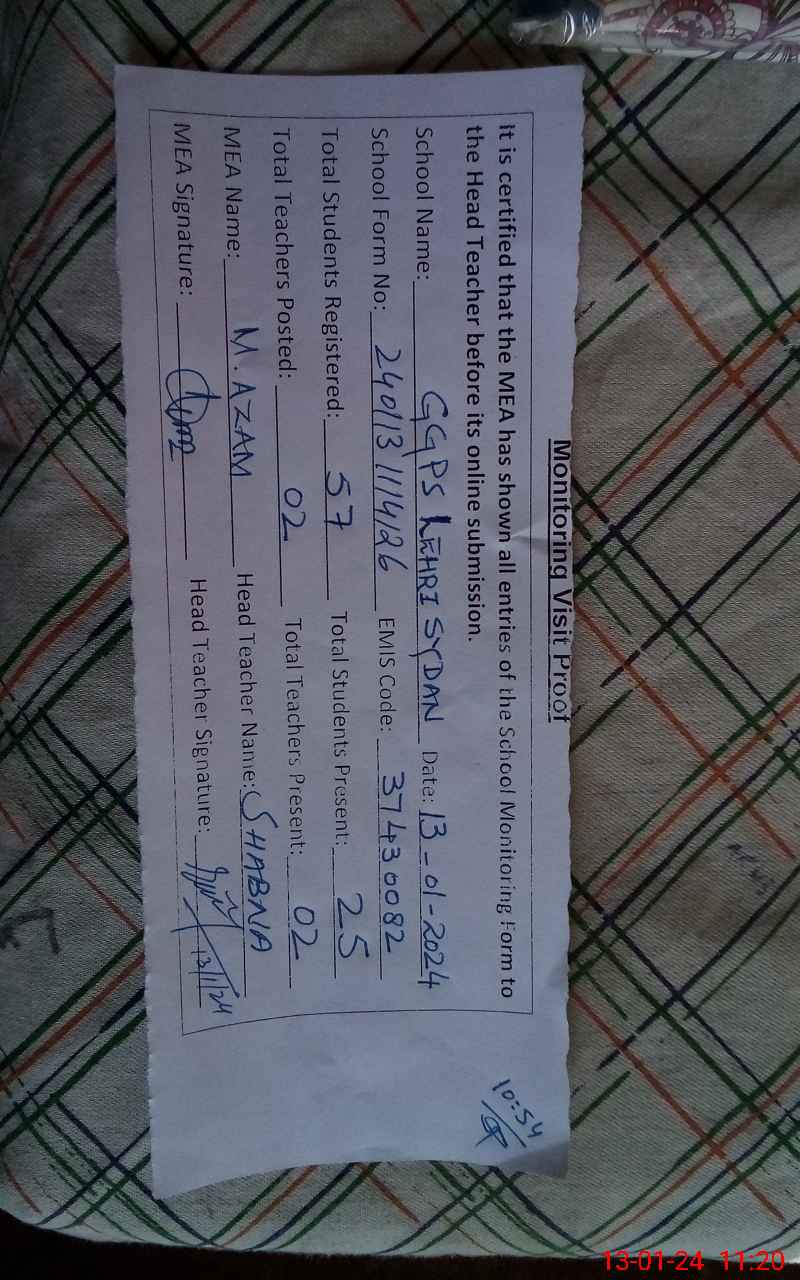 Monitoring Visit Proof
It is certified that the MEA has shown all entries of the School Monitoring Form to
the Head Teacher before its online submission.
School Name: GGPS LEHRI SYDAN Date: 13-01-2024
School Form No: 2401131114126 EMIS Code: 37430082
Total Students Registered: 57 Total Students Present: 25
Total Teachers Posted: 02 Total Teachers Present: 02
MEA Name: M. AZAM Head Teacher Name: SHABNA
MEA Signature: Head Teacher Signature: 13/1/24
10:54
13-01-24 11:20